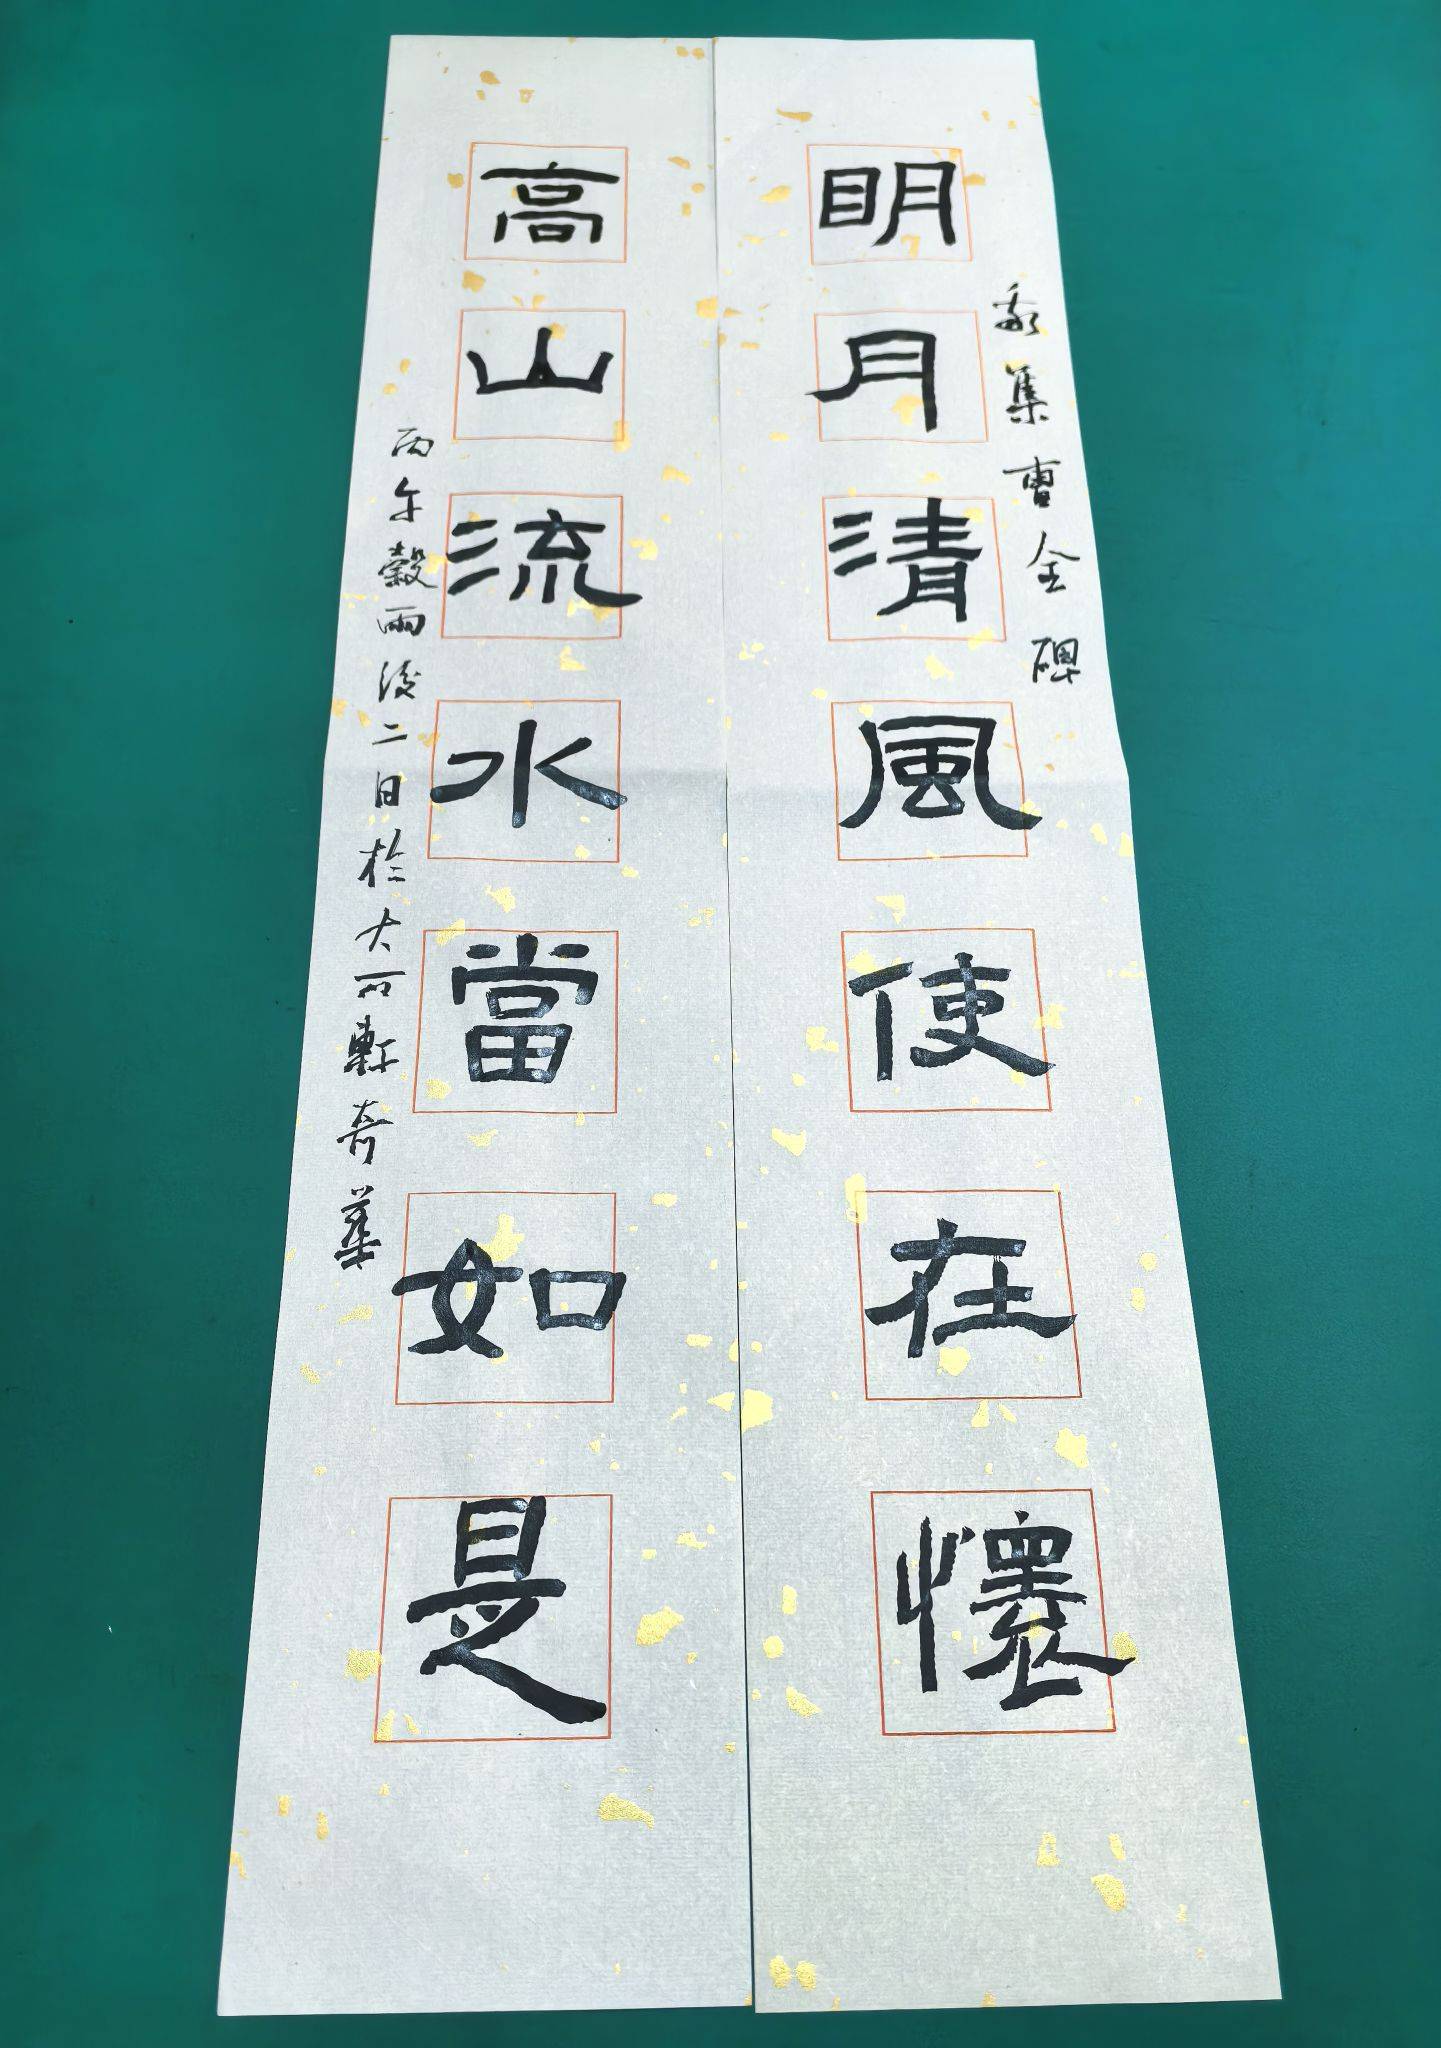 敬集曹全碑
明月清風使在懷
高山流水當如是
丙午穀雨後二日於大可軒奇華